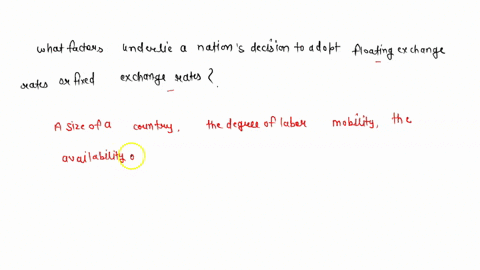 what factors underlie a nation's decision to adopt floating exchange
rates or fixed exchange rates?
A size of a country, the degree of labor mobility, the
availability o